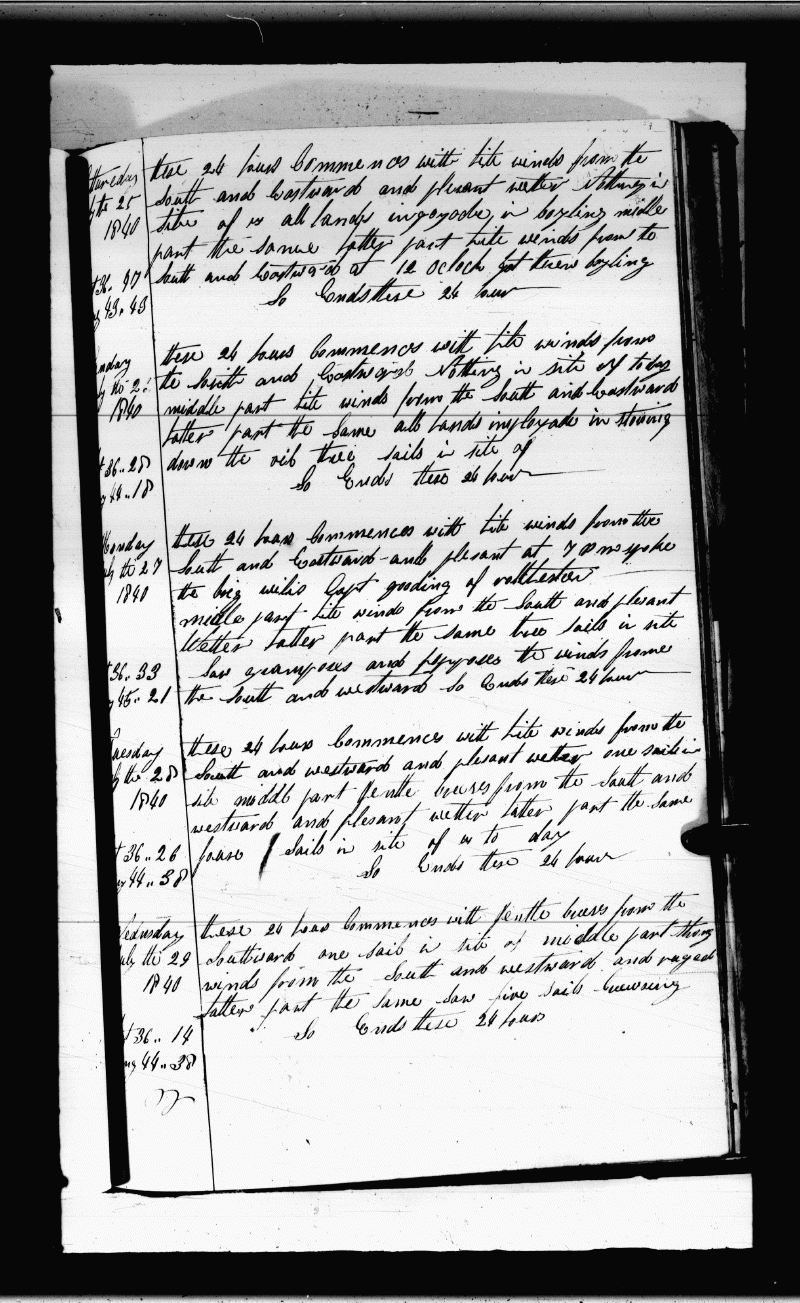 these 24 hours Commences with lite winds from the
South and Eastward and plesant wetter Nothing in
site of us all hands imployde in boyling middle
part the same latter part lite winds from to
South and Eastward at 12 Oclock got threw boyling
So Ends these 24 hours
1840
43. 43
these 24 hours Commences with lite winds from
the South and Eastward Nothing in site of today
middle part lite winds from the South and Eastward
latter part the same all hands imployde in stowing
down the oil three sails in site of
So Ends these 24 hours
1840
36.. 28
44.. 18
these 24 hours Commences with lite winds from the
South and Eastward and plesant at 7 spoke
the brig Capt gooding of
middle part lite winds from the South and plesant
Wetter latter part the same two sails in site
Saw gramposes and the winds from
the South and westward So Ends these 24 hours
onday
the 27
1840
36.. 33
45.. 21
these 24 hours Commences with lite winds from the
South and westward and plesant wetter one sail in
site middle part gentle breses from the South and
westward and plesant wetter latter part the same
Sails in site of us to day
So Ends these 24 hours
uesday
the 28
1840
36.. 26
44.. 38
these 24 hours Commences with gentle breses from the
Southward one sail in site of middle part strong
winds from the South and westward and ruged
latter part the same saw five sails Cruesing
So Ends these 24 hours
ednesday
uly the 29
1840
36.. 14
44.. 38